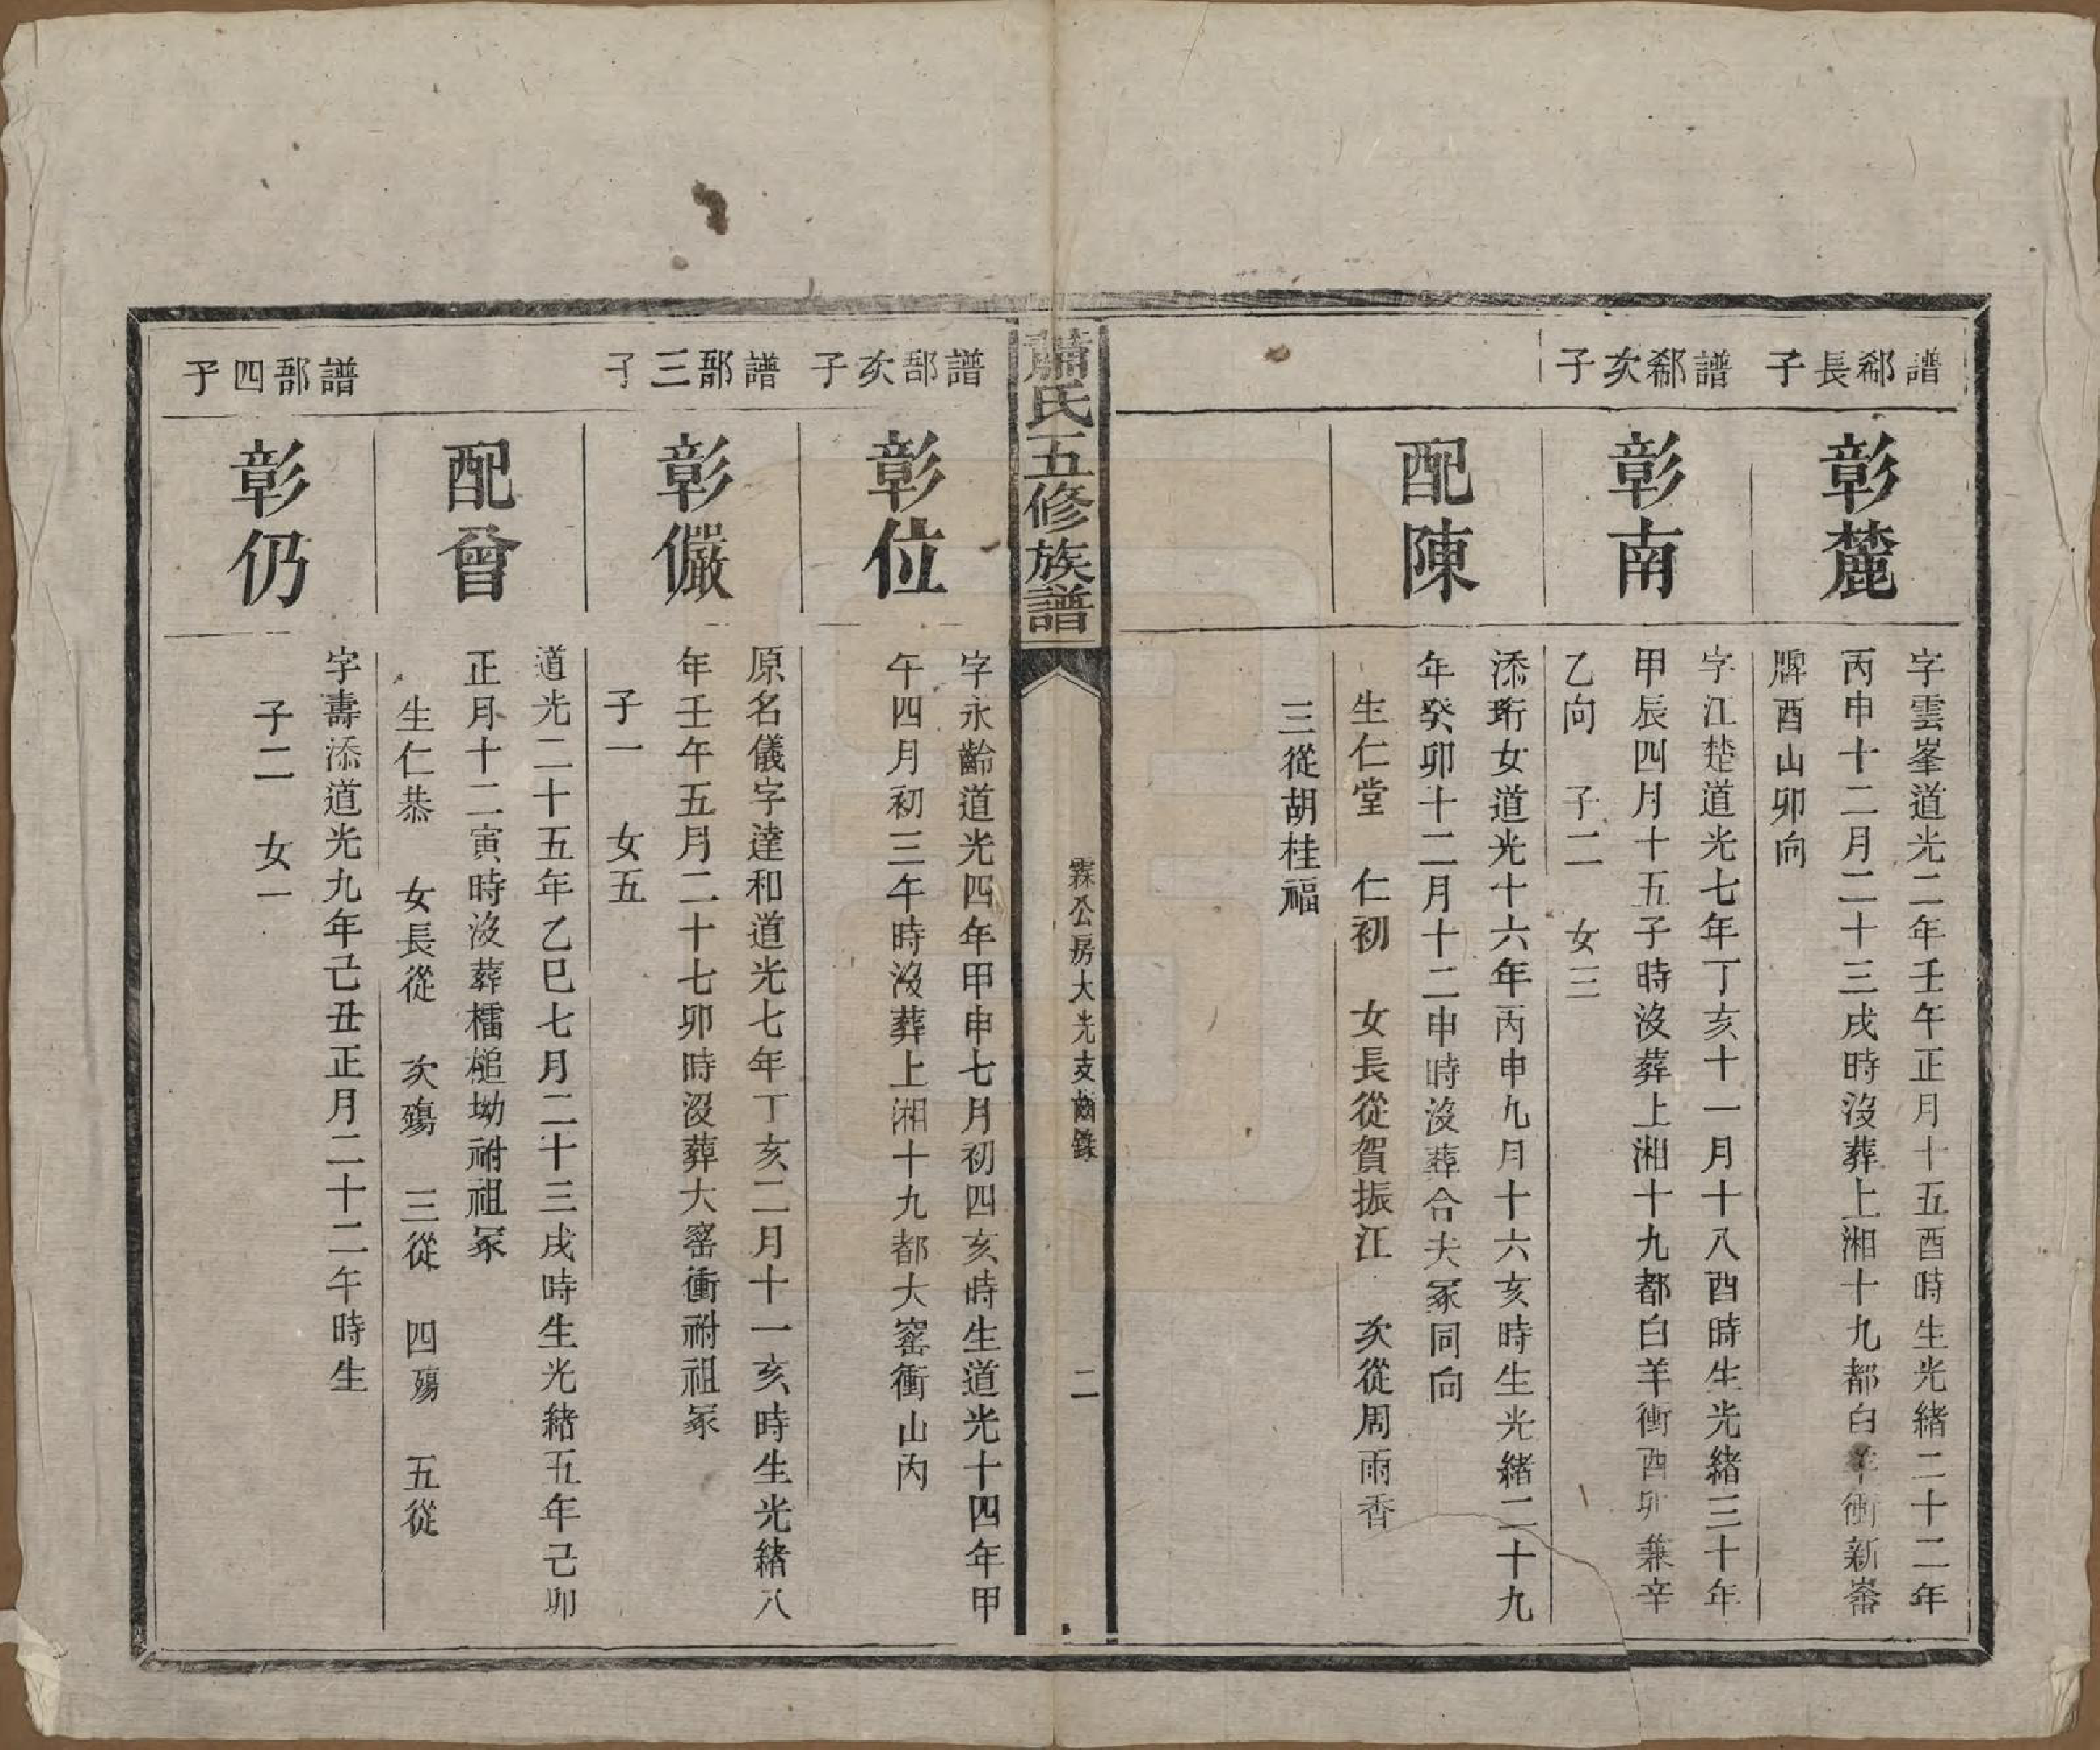 譜郗長子
彰麓
字雲峯道光二年壬午正月十五酉時生光緒二十二年
丙申十二月二十三戌時沒葬上湘十九都白羊衝新崙
牌酉山卯向
譜郗次子
彰南
字江楚道光七年丁亥十一月十八酉時生光緒三十年
甲辰四月十五子時沒葬上湘十九都白羊衝酉卯兼辛
乙向 子二 女三
配陳
添珩女道光十六年丙申九月十六亥時生光緒二十九
年癸卯十二月十二申時沒葬合夫冢同向
生仁堂 仁初 女長從賀振江 次從周雨香
三從胡桂福
蕭氏五修族譜
霖公房大光支齒錄
二
譜郚次子
彰位
字永齡道光四年甲申七月初四亥時生道光十四年甲
午四月初三午時沒葬上湘十九都大窰衝山內
譜郚三子
彰儼
原名儀字達和道光七年丁亥二月十一亥時生光緒八
年壬午五月二十七卯時沒葬大窰衝祔祖冢
子一 女五
配曾
道光二十五年乙巳七月二十三戌時生光緒五年己卯
正月十二寅時沒葬檑槌坳祔祖冢
生仁恭 女長從 次殤 三從 四殤 五從
譜郚四子
彰仍
字壽添道光九年己丑正月二十二午時生
子二 女一